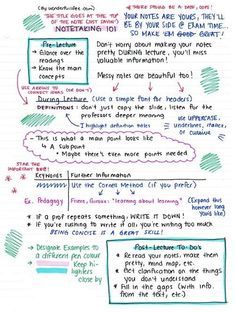 (THERE SHOULD BE A DATE, COPE!)
"THE TITLE GOES AT THE TOP
OF THE NOTE (LAST SAVED!)"
NOTETAKING 101
YOUR NOTES ARE YOURS, THEY'LL
BE BY YOUR SIDE @ EXAM TIME...
SO MAKE 'EM GOOD GREAT!
Pre-Lecture
Glance over the
readings
Know the main
concepts
Don't worry about making your notes
pretty DURING lecture, you'll miss
valuable information!
Messy notes are beautiful too!
USE ARROWS TO
CONNECT IDEAS
During Lecture (Use a simple font for headers)
DEFINITIONS: don't just copy the slides, listen for the
professors deeper meaning
I highlight definition notes
USE UPPERCASE,
underlines, italics,
or cursive
This is what a main point looks like
A subpoint
Maybe there's even more points needed
STAR THE
IMPORTANT BITS!
Keywords
Further Information
Use the Cornell Method (if you prefer)
Ex. Pedagogy
"learning about learning"
(Expand this
however long
you'd like)
If a prof repeats something, WRITE IT DOWN!
If you're rushing to write it all, you're writing too much
BEING CONCISE IS A GREAT SKILL!
Designate Examples to
a different pen colour
Keep highlighters
close by
Post-Lecture To Do's
Re-read your notes, make them
pretty, mind map, etc.
Get clarification on the things
you don't understand
Fill in the gaps (with info.
from the text, etc.)